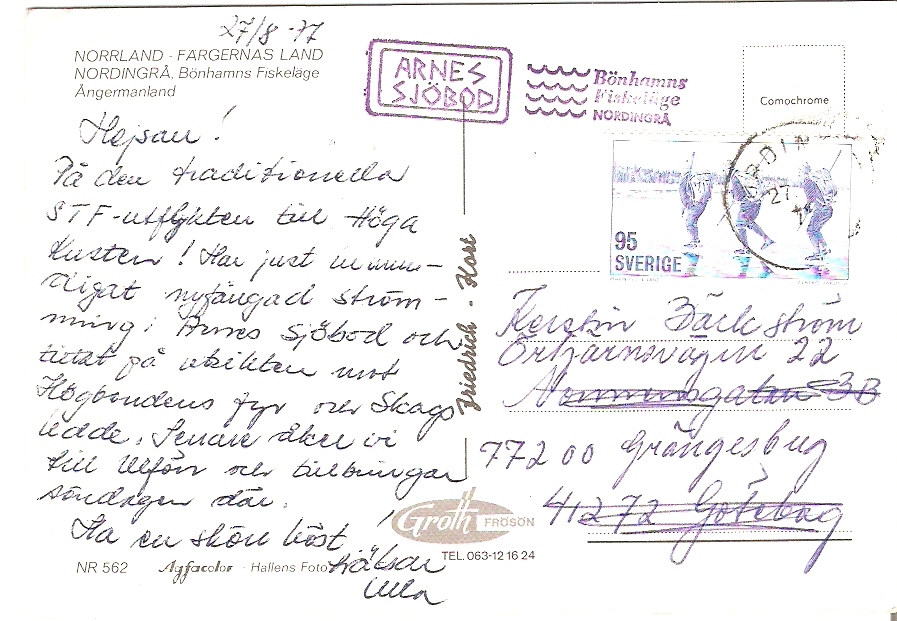 27/8 -77
NORRLAND - FÄRGERNAS LAND
NORDINGRÅ, Bönhamns Fiskeläge
Ångermanland
Hejsan!
På den traditionella
STF-utflykten till Höga
Kusten! Har just inmun-
digat nyfångad ström-
ming i Arnes Sjöbod och
tittat på utsikten mot
Högbondens fyr och Skags
udde. Senare åker vi
till Ulfön och tillbringar
söndagen där.
Ha en skön höst!
hälsar
Ulla
NR 562 Agfacolor - Hallens Foto
ARNES
SJÖBOD
Bönhamns
Fiskeläge
NORDINGRÅ
Comochrome
27
95
SVERIGE
Friedrich - Kort
Kerstin Bäckström
22
77200 Grängesberg
41272 Göteborg
Groth FRÖSÖN
TEL. 063-12 16 24